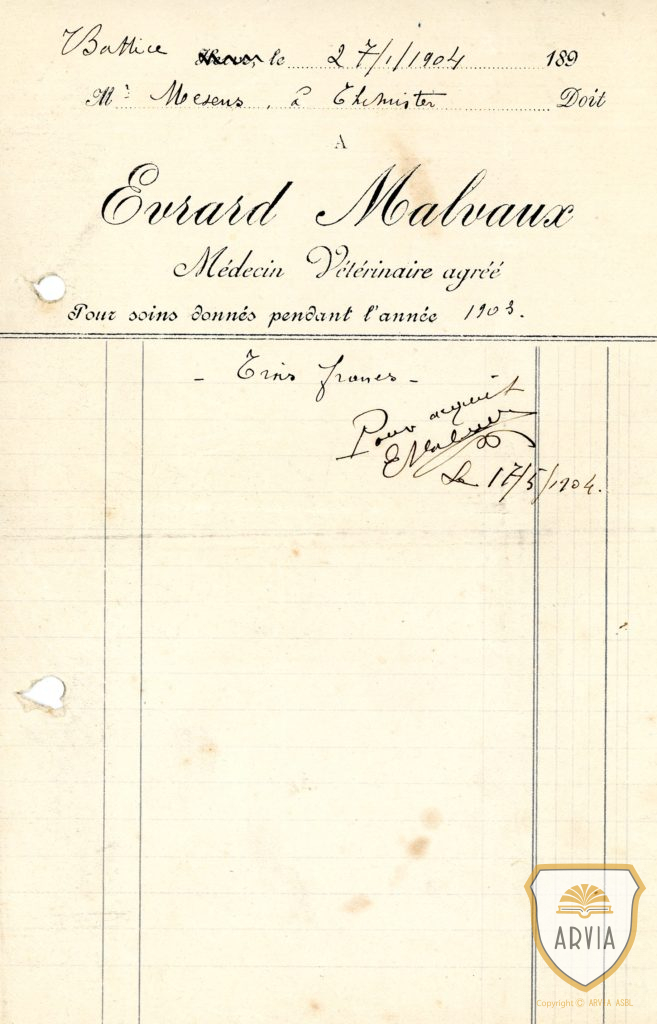 Battice le 27/1/1904 189
Mr Mesens, à Thimister Doit
A
Evrard Malvaux
Médecin Vétérinaire agréé
Pour soins donnés pendant l'année 1903.
- Trois francs -
Pour acquit
EMalvaux
Le 17/5/1904.
ARVIA
Copyright © ARVIA ASBL